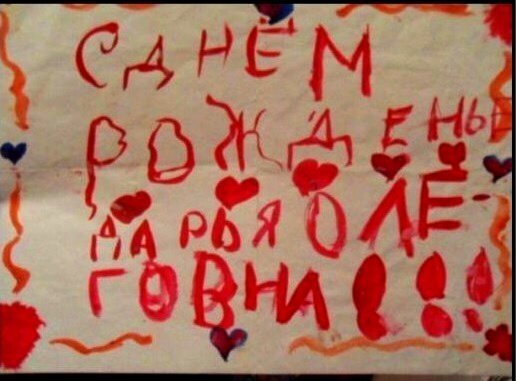 С ДНЁМ
РОЖДЕНЬЕ
ДАРЬЯ ОЛЕ-
ГОВНА!!!